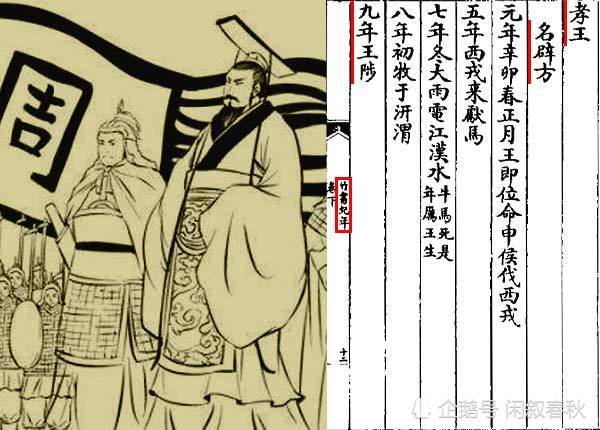 孝王
名辟方
元年辛卯春正月王即位命申侯伐西戎
五年西戎来獻馬
七年冬大雨電江漢水
牛馬死是
年厲王生
八年初牧于汧渭
九年王陟
竹書紀年
卷下
十二
周
企鹅号 闲叙春秋